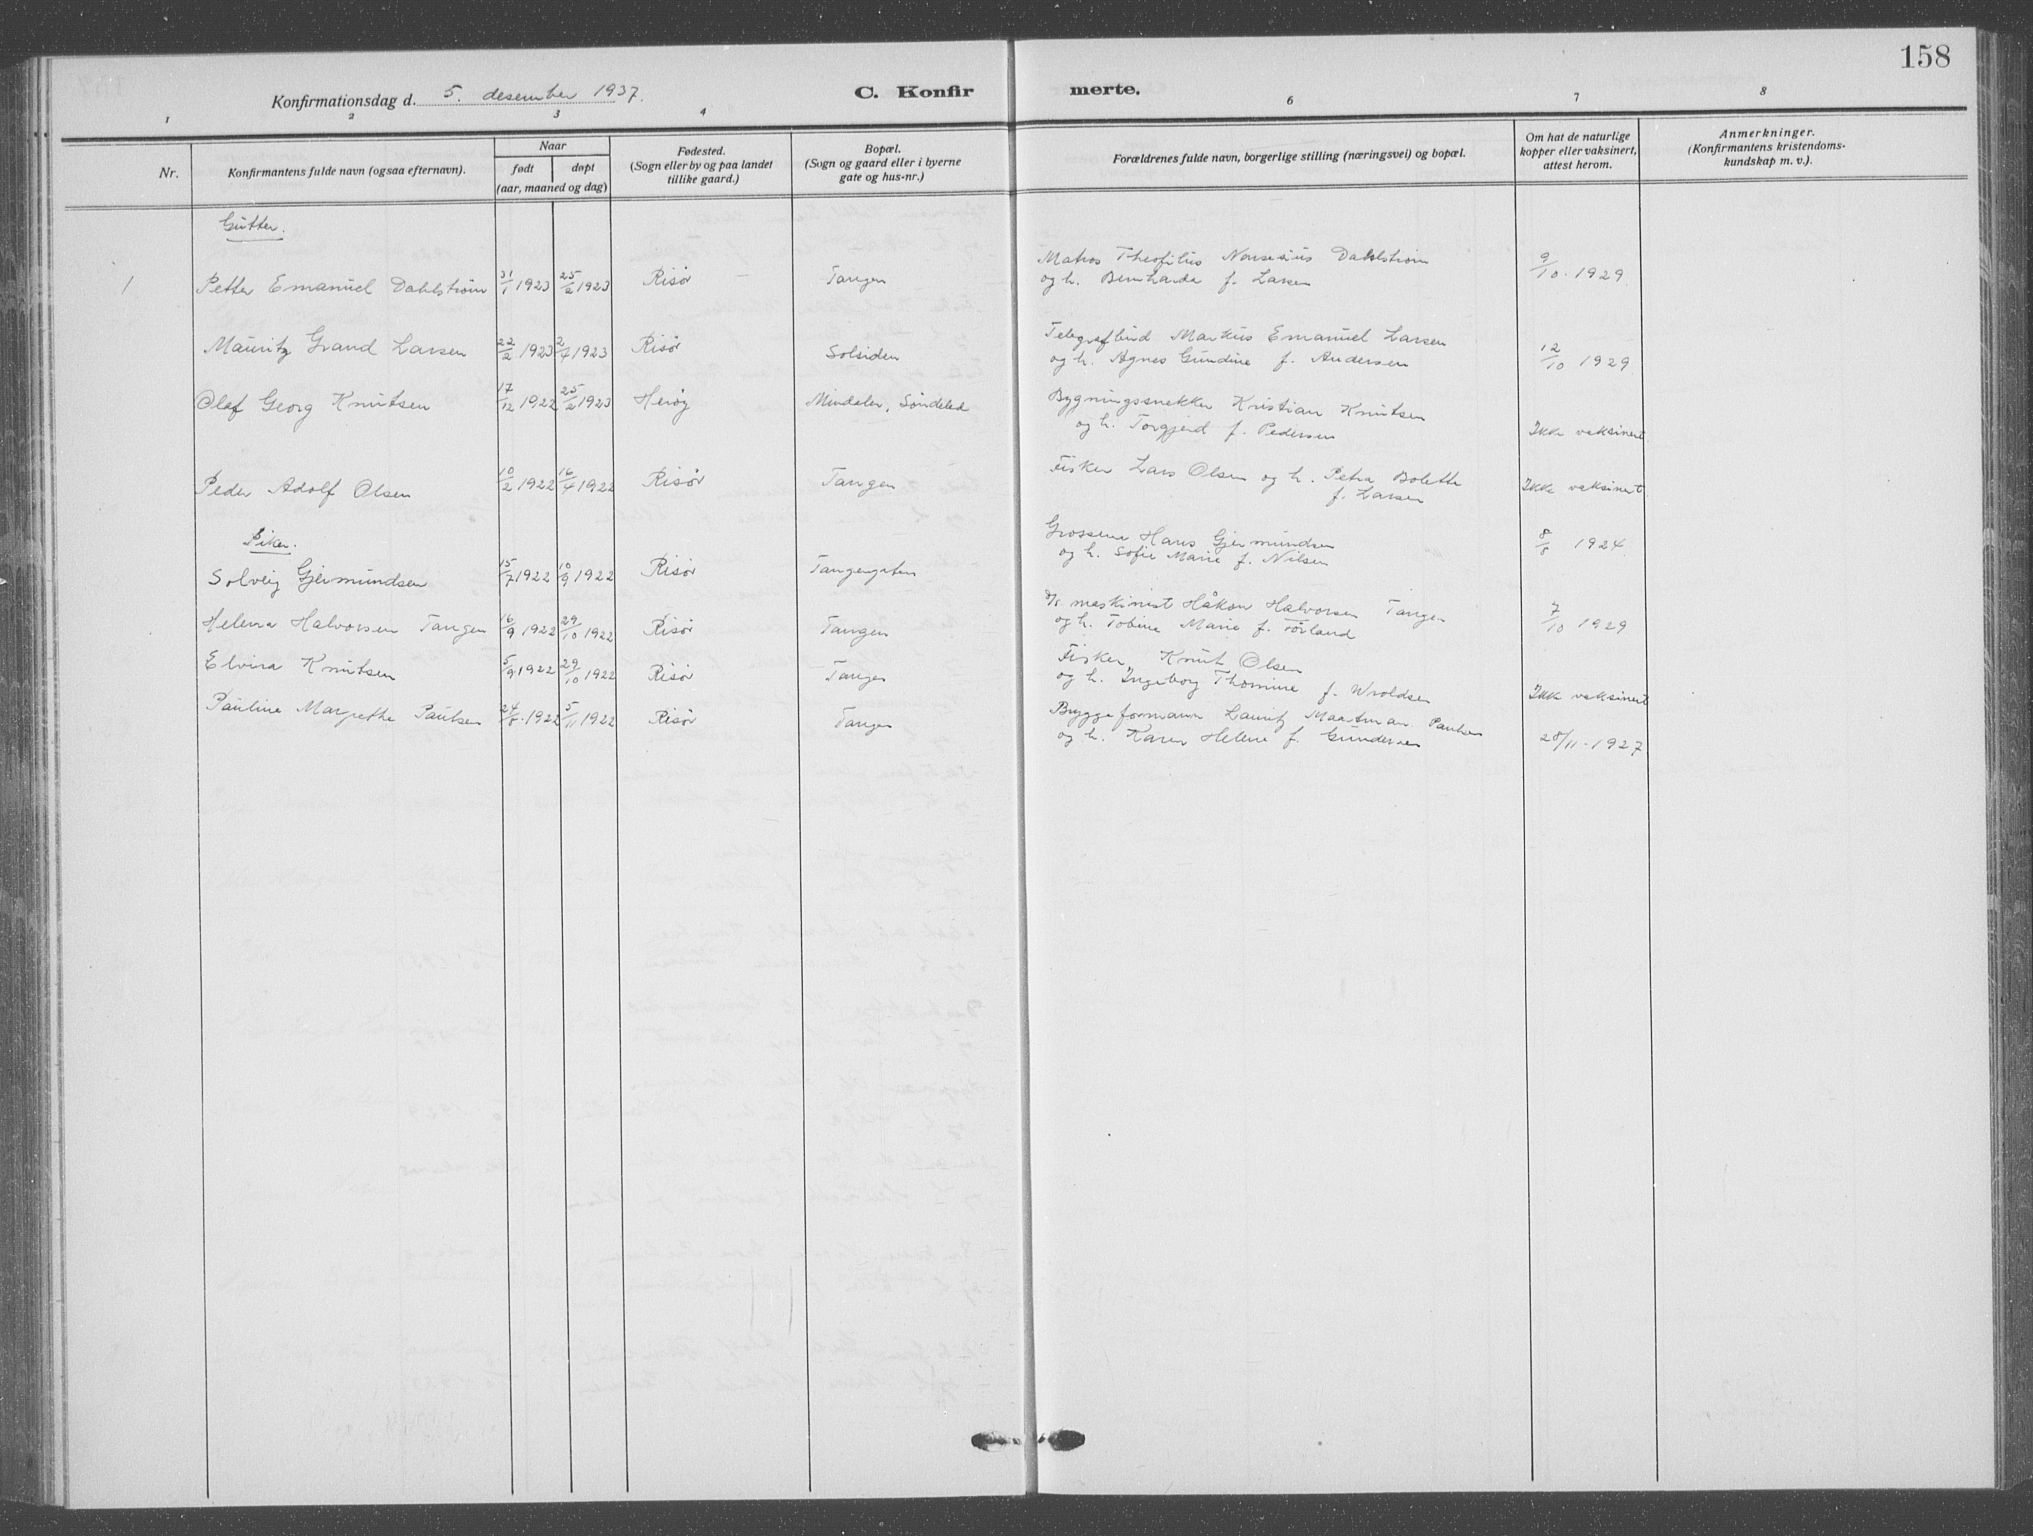 158
Konfirmationsdag d. 5. desember 1937.
C. Konfir merte.
1 2 3 4 6 7 8
Nr.
Konfirmantens fulde navn (ogsaa efternavn).
Naar
født døpt
(aar, maaned og dag)
Fødested.
(Sogn eller by og paa landet
tillike gaard.)
Bopæl.
(Sogn og gaard eller i byerne
gate og hus-nr.)
Forældrenes fulde navn, borgerlige stilling (næringsvei) og bopæl.
Om hat de naturlige
kopper eller vaksinert,
attest herom.
Anmerkninger.
(Konfirmantens kristendoms-
kundskap m. v.).
Gutter.
1 Petter Emanuel Dahlstrøm 31/1 1923 25/2 1923 Risør Tangen
Matros Theofilus Dahlstrøm
og h. Bernharda f. Larsen
9/10. 1929
Mauritz Grand Larsen 22/2 1923 2/4 1923 Risør Solsiden
Telegrafbud Markus Emanuel Larsen
og h. Agnes Gundine f. Andersen
12/10 1929
Olaf Georg Knutsen 17/12 1922 25/2 1923 Herøy Mindalen, Søndeled
Bygningssnekker Kristian Knutsen
og h. Torgjerd f. Pedersen
Ikke vaksinert
Peder Adolf Olsen 10/2 1922 16/4 1922 Risør Tangen
Fisker Lars Olsen og h. Petra Bolette
f. Larsen
Ikke vaksinert
Piker.
Solveig Gjermundsen 15/7 1922 10/9 1922 Risør Tangengaten
Grosserer Hans Gjermundsen
og h. Sofie Marie f. Nilsen
8/8 1924
Helena Halvorsen Tangen 16/9 1922 29/10 1922 Risør Tangen
maskinist Håkon Halvorsen Tangen
og h. Tobine Marie f. Førland
7/10 1929
Elvira Knutsen 5/9. 1922 29/10 1922 Risør Tangen
Fisker Knut Olsen
og h. Ingeborg Thomine f. Wroldsen
Ikke vaksinert
Pauline Margrethe Paulsen 24/8. 1922 5/11 1922 Risør Tangen
Byggeformann Lauritz Maartman Paulsen
og h. Karen Helene f. Gundersen
28/11. 1927